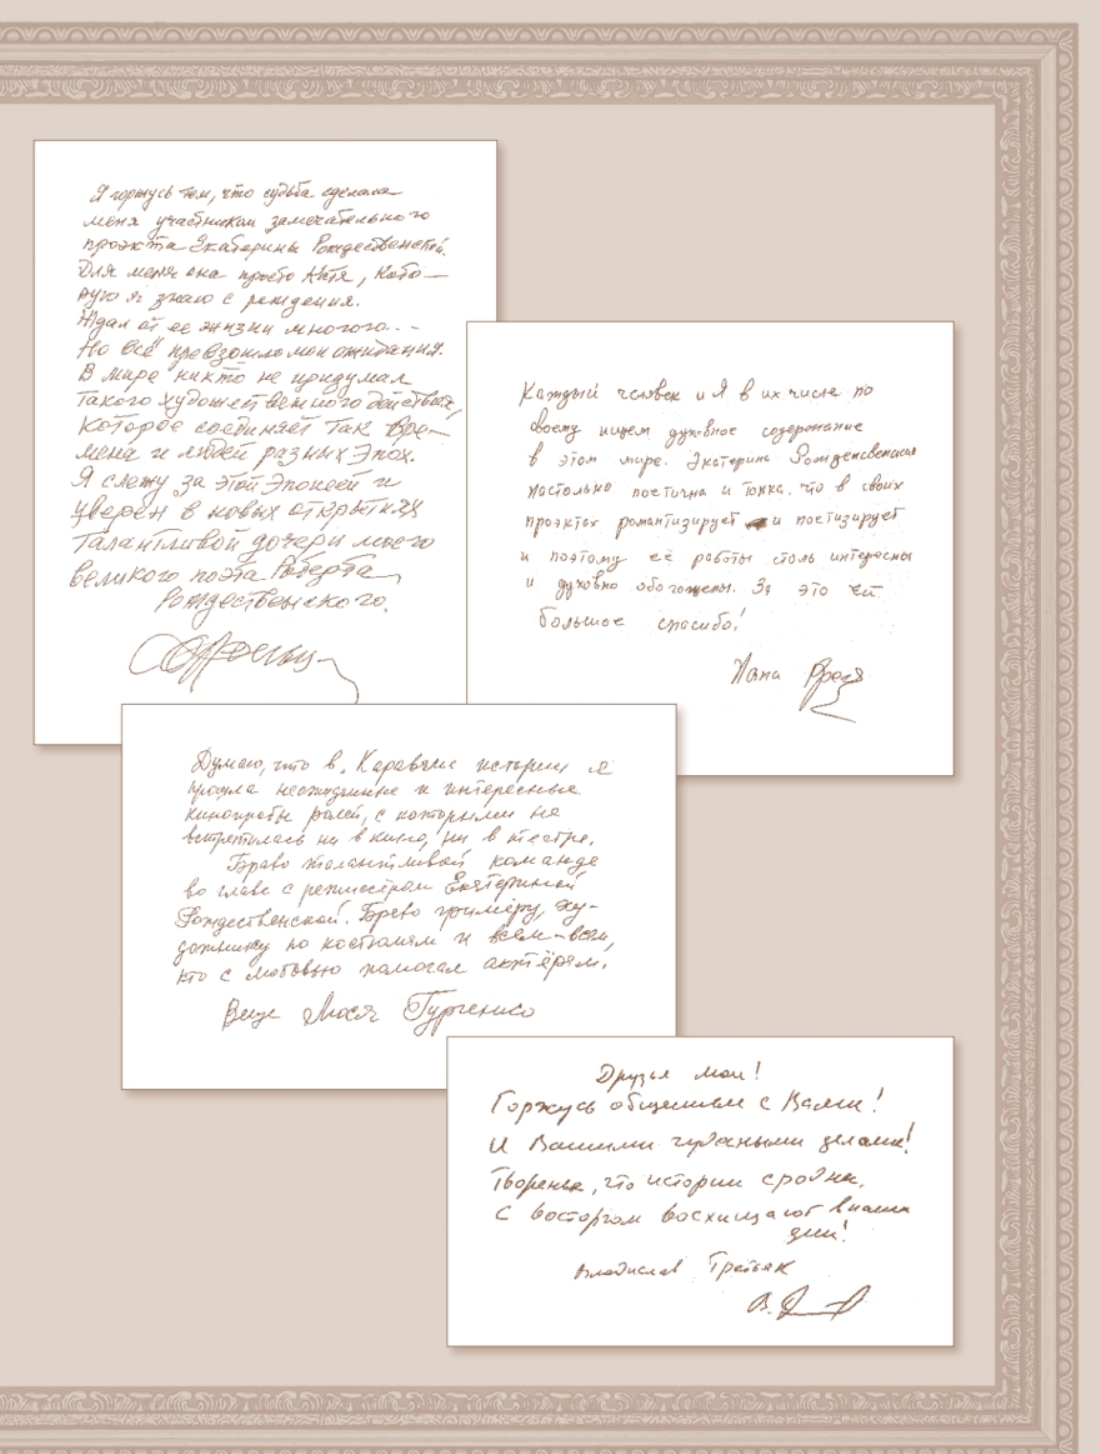 Я горжусь тем, что судьба сделала
меня участником замечательного
проэкта Екатерины Рождественской.
Для меня она просто Катя, кото–
рую я знаю с рождения.
Ждал от ее жизни многого...
Но всё превзошло мои ожидания.
В мире никто не придумал
такого художественного действия,
которое соединяет так вре–
мена и людей разных Эпох.
Я слежу за этой Эпопеей и
уверен в новых открытиях
талантливой дочери моего
великого поэта Роберта
Рождественского.
Каждый человек и Я в их числе по
своему ищем духовное содержание
в этом мире. Екатерина Рождественская
настолько поетична и тонка, что в своих
проэктах романтизирует и поетизирует
и поэтому её работы столь интересны
и духовно обогащены. За это ей
большое спасибо!
Думаю, что в "Караване истории" я
прошла неожиданные и интересные
кинопробы ролей, с которыми не
встретилась ни в кино, ни в театре.
Браво талантливой команде
во главе с режиссёром Екатериной
Рождественской. Браво гримёру, ху-
дожнику по костюмам и всем-всем,
кто с любовью помогал актёрам.
Ваша Люся Гурченко
Друзья мои!
Горжусь общением с Вами!
И Вашими чудесными делами!
Творенья, что истории сродни,
С восторгом восхищают в наши
дни!
Владислав Третьяк